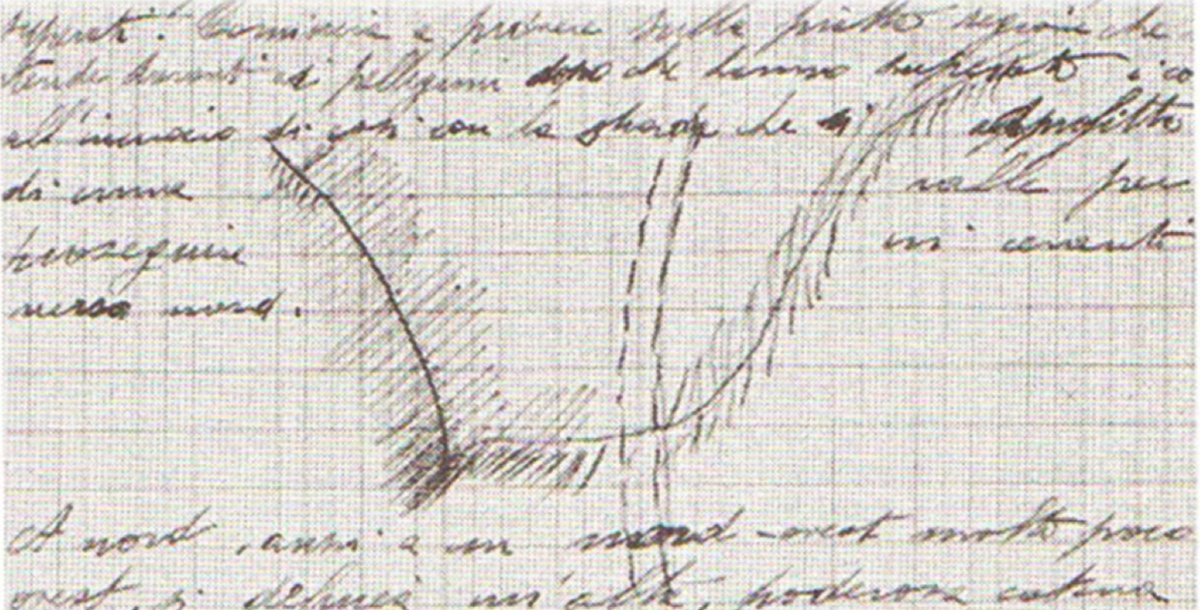 superati. Comincia a piovere sulla piatta regione che
stende davanti ai pellegrini dopo che hanno superato i co
all'inizio di così con la strada che si approfitta
di una valle per
proseguire in avanti
verso nord.
A nord, anzi a un nord-ovest molto poco
ovest, si delinea un'alta, poderosa catena